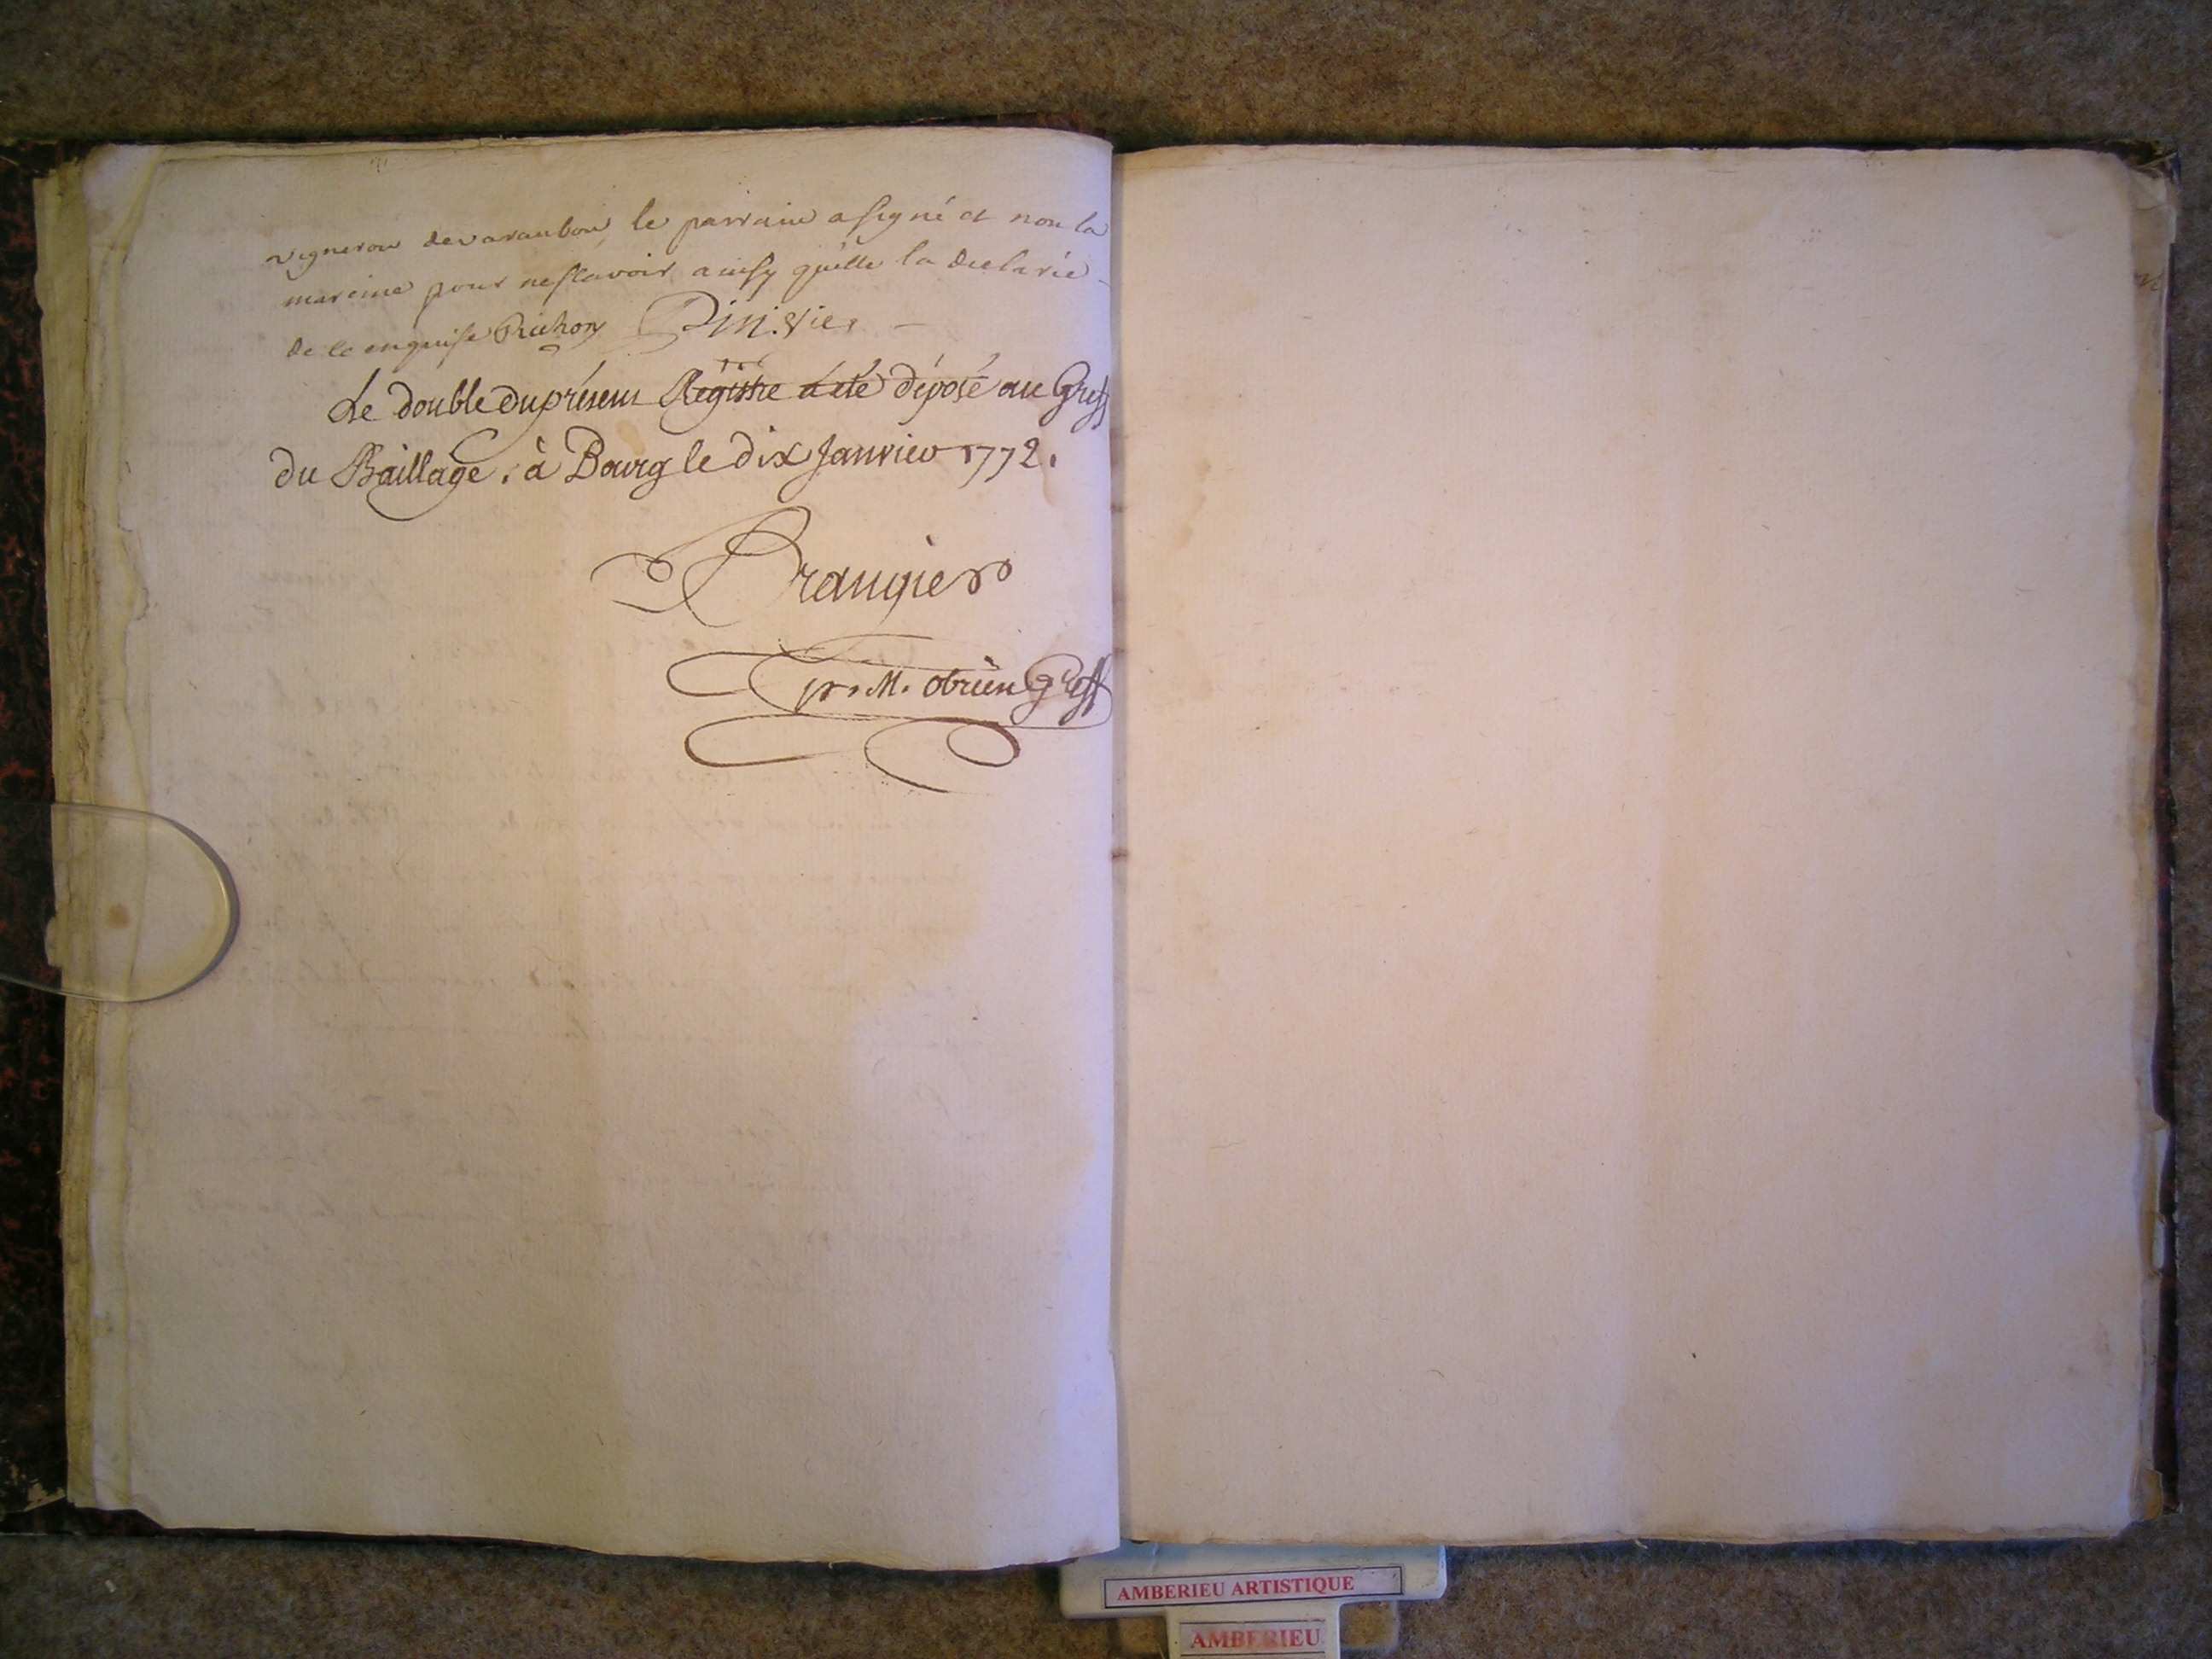 vigneron de varanbon le parrain a signé et non la
mareine pour ne sçavoir ainsy quelle la declarée
de ce enquise Richon
Le double du présent Régistre a été déposé au Greff
du Baillage. à Bourg le dix Janvier 1772.
Brangier
pr. M. obrien Greff
AMBERIEU ARTISTIQUE
AMBERIEU